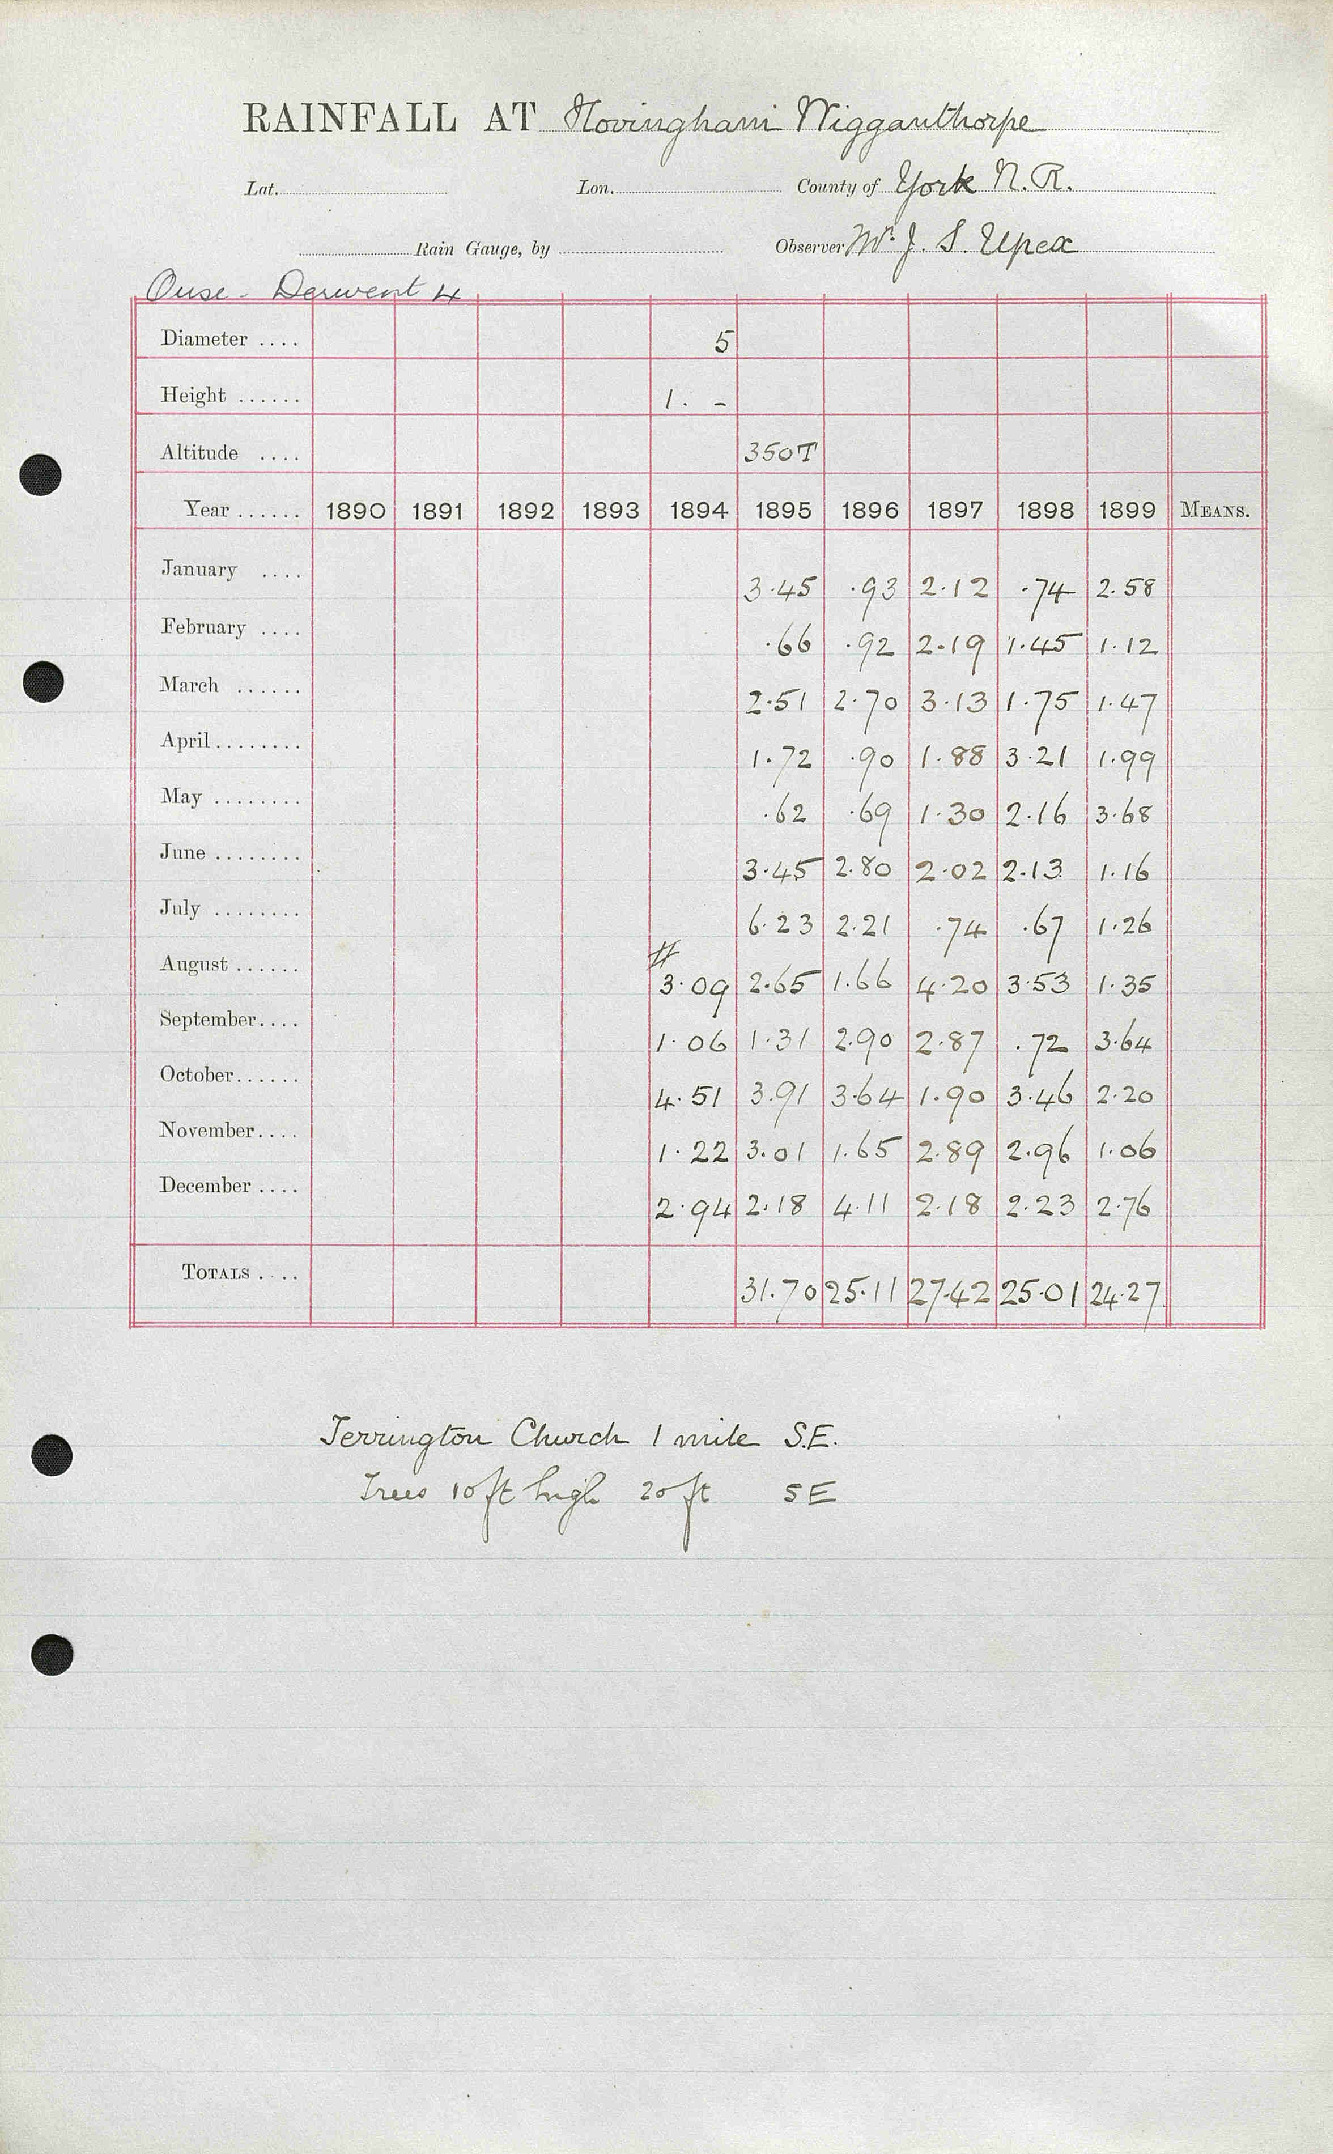 RAINFALL AT Hovingham Wigganthorpe
Lat. Lon. County of York N.R.
Rain Gauge, by Observer Mr J. S. Upex
Ouse - Derwent 4
Diameter .... 5
Height ...... 1. -
Altitude .... 350T
Year ...... 1890 1891 1892 1893 1894 1895 1896 1897 1898 1899 MEANS.
January .... 3.45 .93 2.12 .74 2.58
February .... .66 .92 2.19 1.45 1.12
March ...... 2.51 2.70 3.13 1.75 1.47
April ........ 1.72 .90 1.88 3.21 1.99
May ........ .62 .69 1.30 2.16 3.68
June ........ 3.45 2.80 2.02 2.13 1.16
July ........ 6.23 2.21 .74 .67 1.26
August ...... # 3.09 2.65 1.66 4.20 3.53 1.35
September .... 1.06 1.31 2.90 2.87 .72 3.64
October ...... 4.51 3.91 3.64 1.90 3.46 2.20
November .... 1.22 3.01 1.65 2.89 2.96 1.06
December .... 2.94 2.18 4.11 2.18 2.23 2.76
TOTALS .... 31.70 25.11 27.42 25.01 24.27
Terrington Church 1 mile S.E.
Trees 10 ft high 20 ft SE